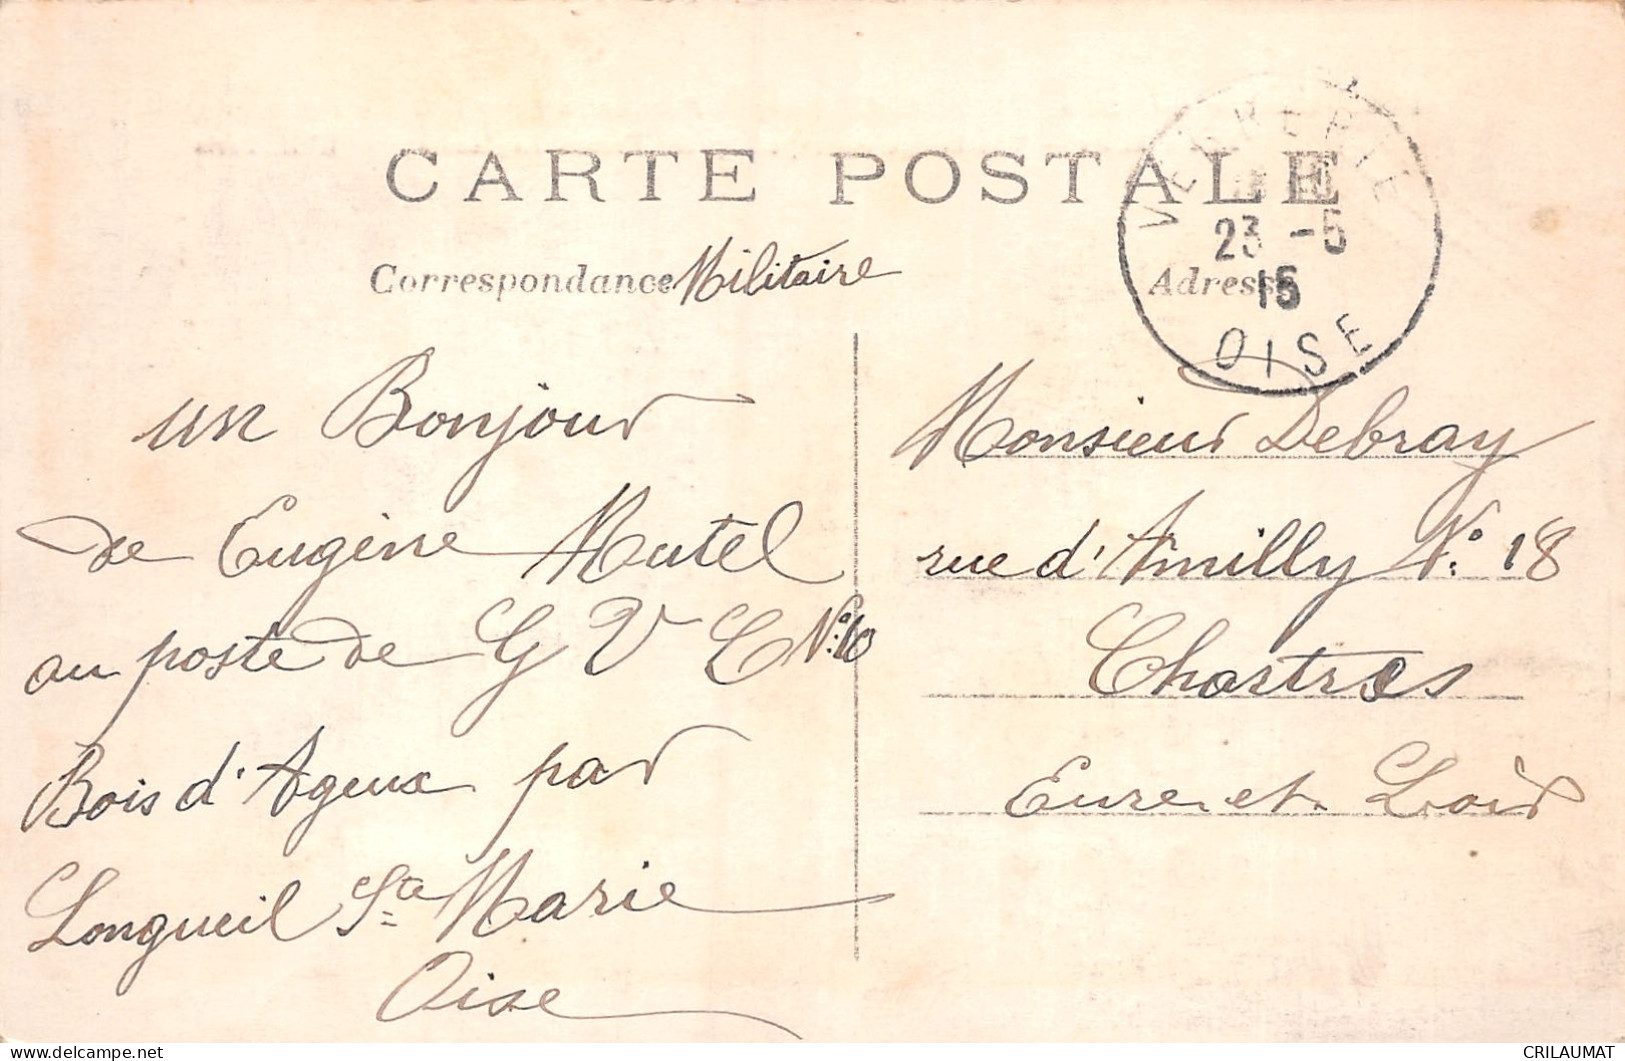 CARTE POSTALE
Correspondance Militaire
Adresse
VERBERIE
23 -5
15
OISE
un Bonjour
de Eugène Mutel
au poste de G V C N° 10
Bois d'Ageux par
Longueil Ste Marie
Oise
Monsieur Debray
rue d'Amilly N° 18
Chartres
Eure et Loir
delcampe.net
CRILAUMAT